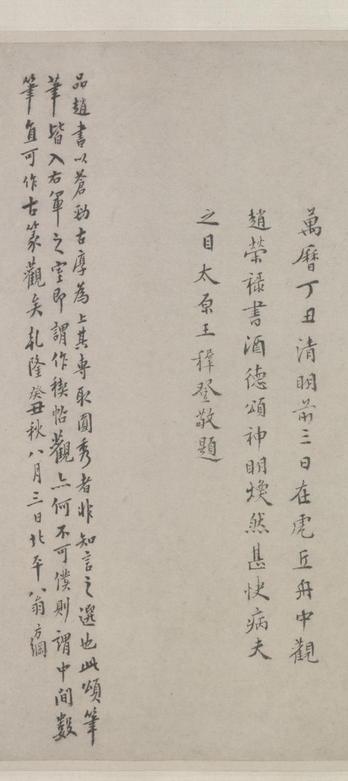 萬曆丁丑清明前三日在虎丘舟中觀
趙榮祿書酒德頌神明煥然甚快病夫
之目太原王穉登敬題
品趙書以蒼勁古厚為上其專取圓秀者非知言之選也此頌筆
筆皆入右軍之室即謂作禊帖觀亦何不可僕則謂中間數
筆直可作古篆觀矣乾隆癸丑秋八月三日北平翁方綱